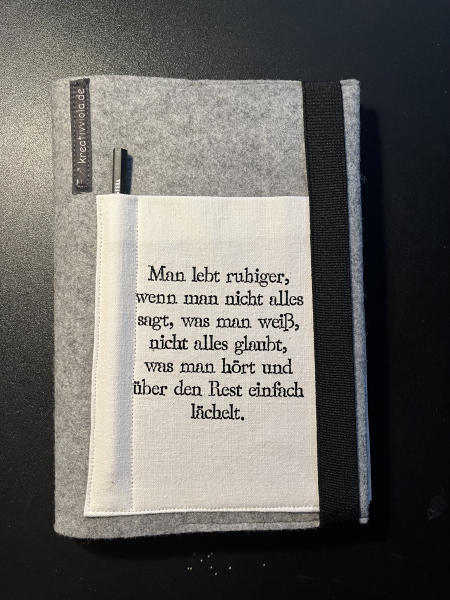 kreativviola.de
Man lebt ruhiger,
wenn man nicht alles
sagt, was man weiß,
nicht alles glaubt,
was man hört und
über den Rest einfach
lächelt.